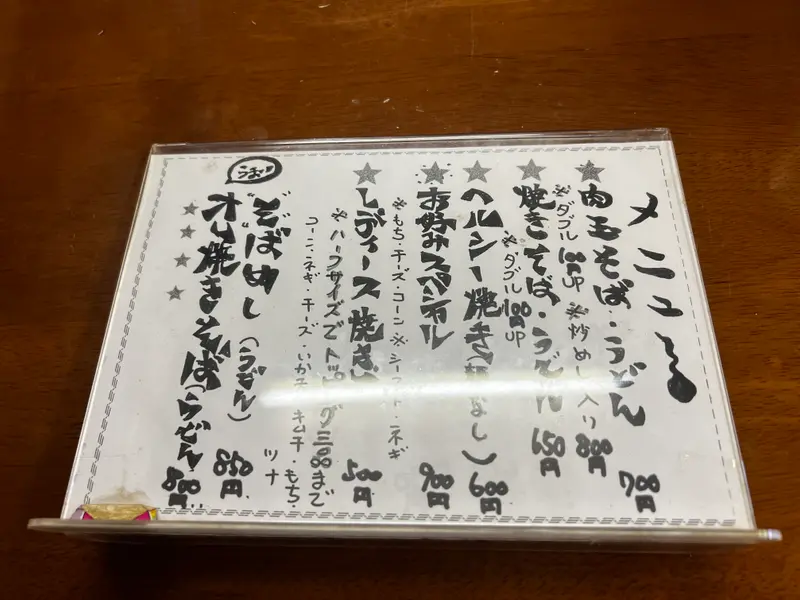 メニュー
肉玉そば・うどん 700円
※ダブル100円UP ※炒めし入り 800円
焼きそば・うどん 650円
※ダブル100円UP
ヘルシー焼き(麺なし) 600円
お好みスペシャル 900円
※もち・チーズ・コーン※シーフード・ネギ
レディース焼き 500円
※ハーフサイズでトッピング三品まで
コーン・ネギ・チーズ・いか天・キムチ・もち・
ツナ
そばめし(うどん) 850円
オム焼きそば(うどん) 800円